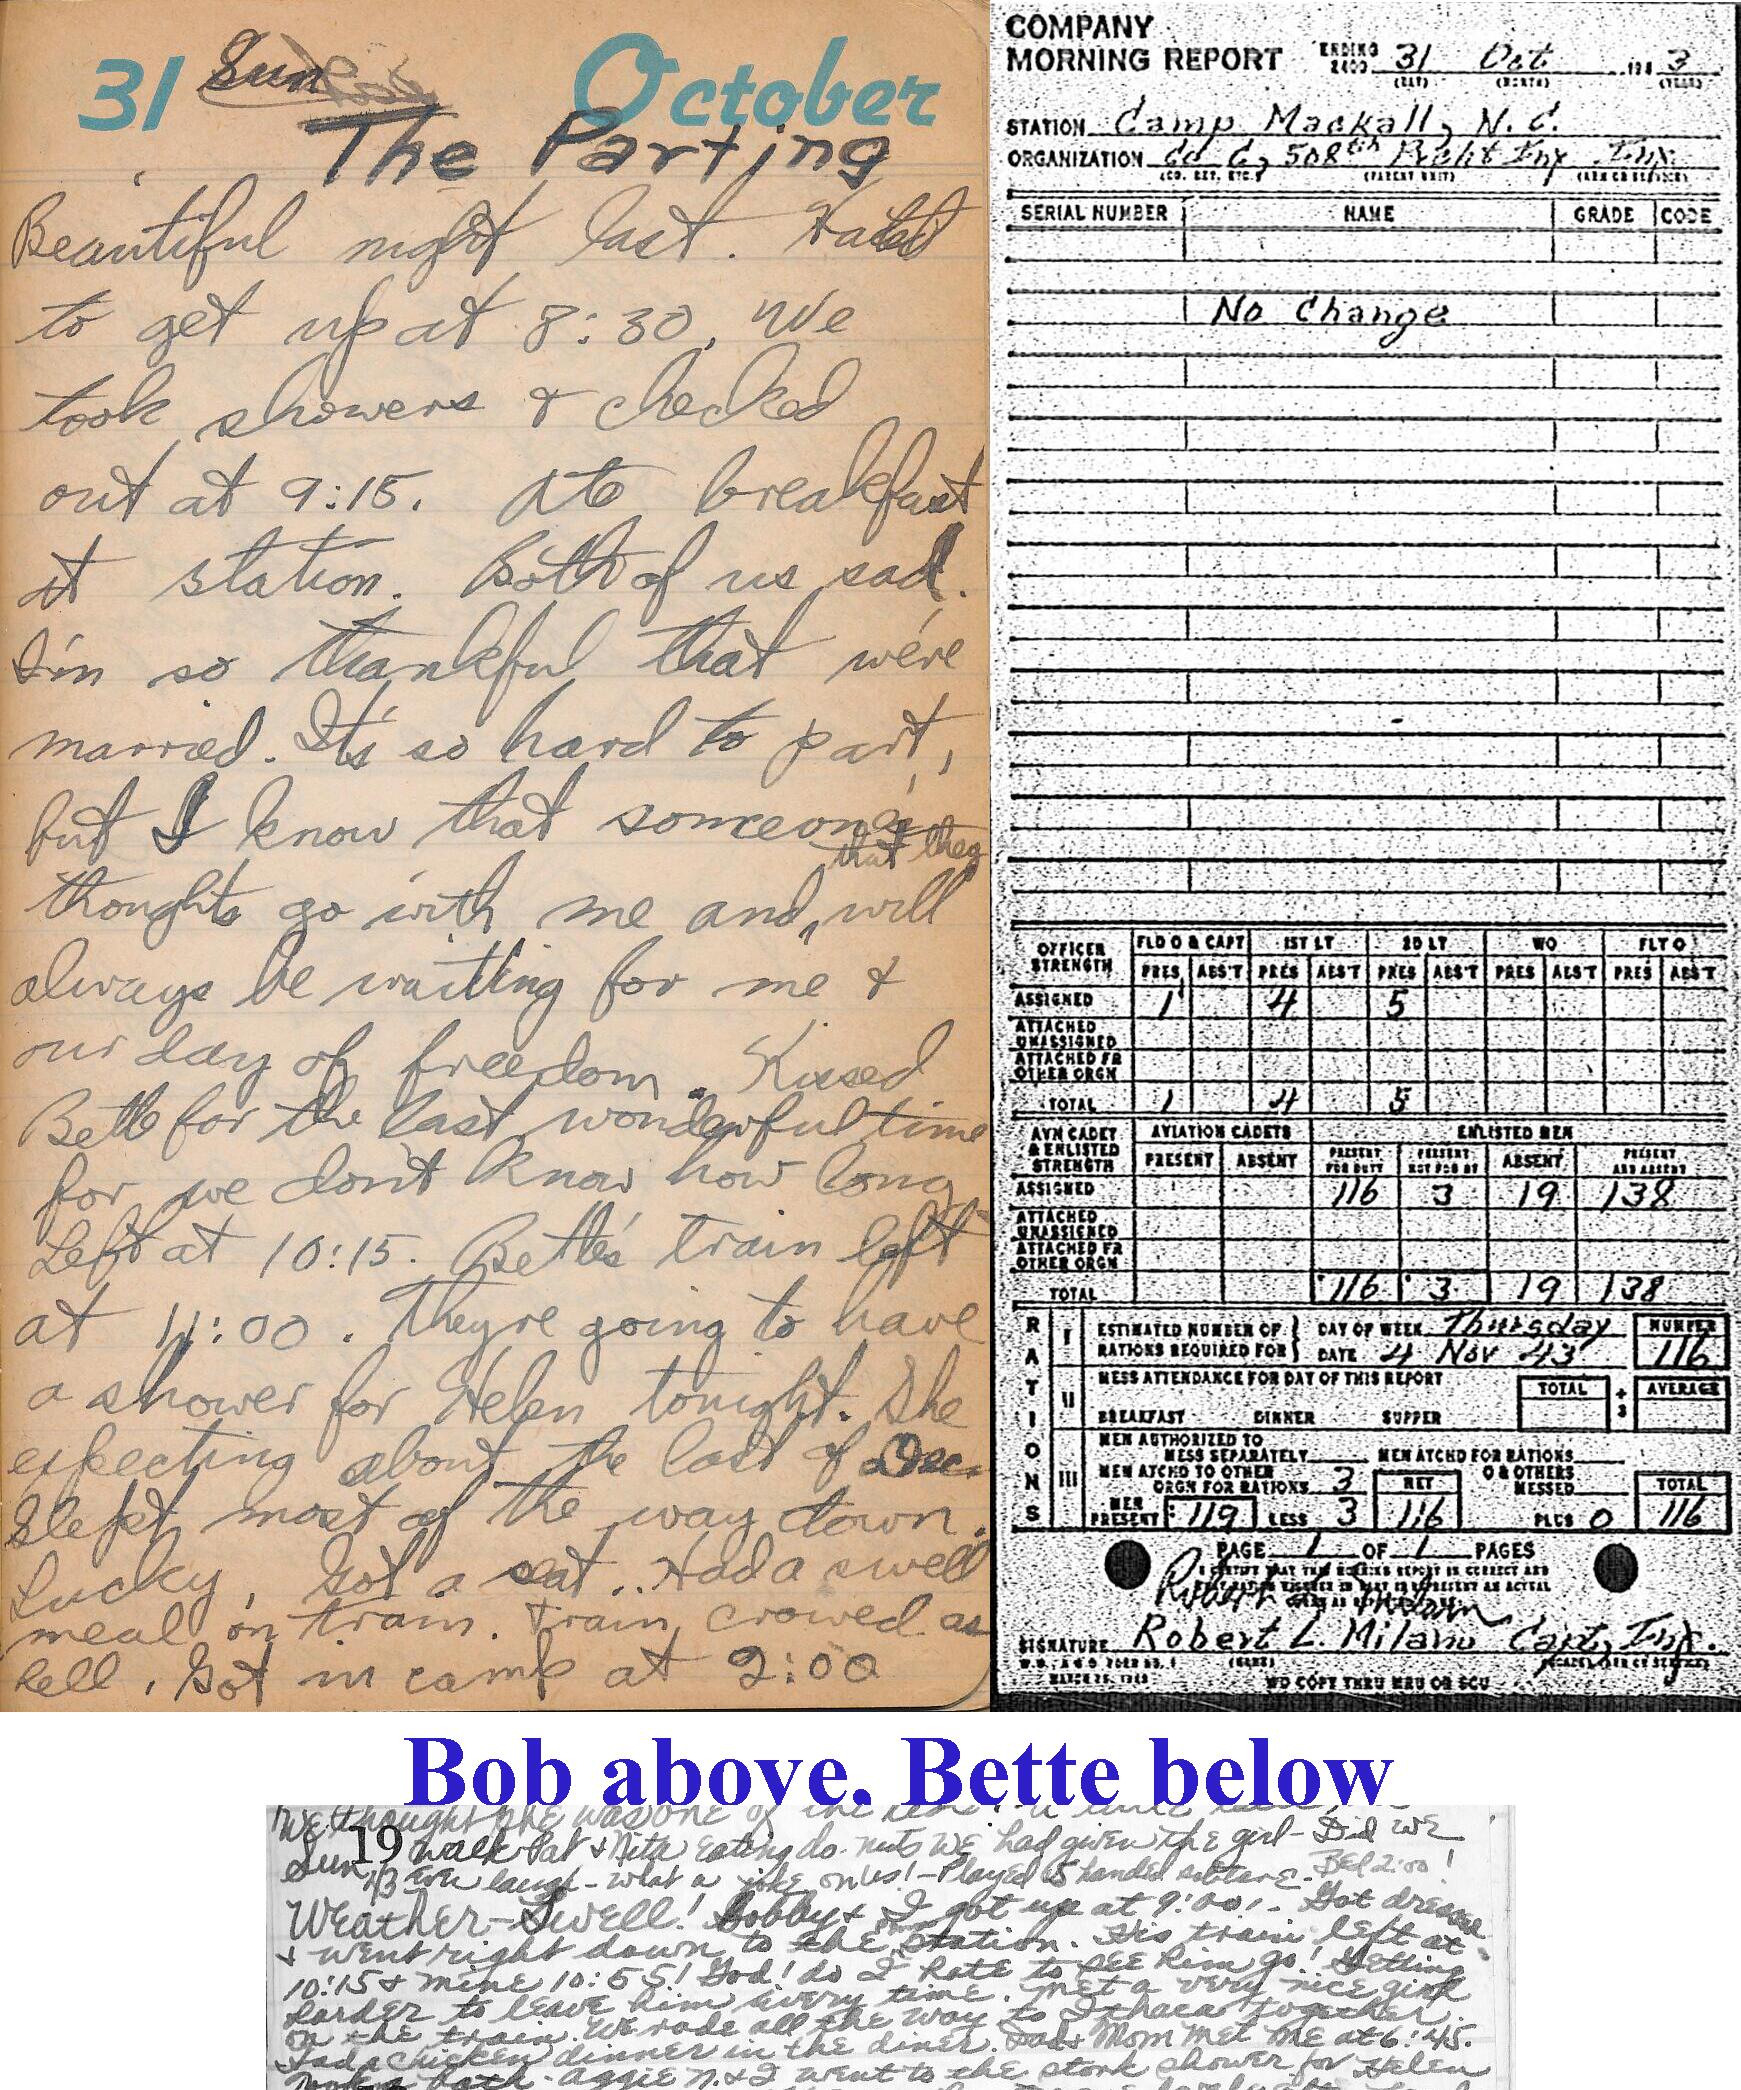 31 Sun October
The Parting
Beautiful night last. Hated
to get up at 8:30. We
took showers & checked
out at 9:15. Ate breakfast
at station. Both of us sad.
I'm so thankful that we're
married. It's so hard to part,
but I know that someone's
that they
thoughts go with me and will
always be waiting for me &
our day of freedom. Kissed
Bette for the last wonderful time
for we don't know how long
Left at 10:15. Bette's train left
at 11:00. They're going to have
a shower for Helen tonight. She
expecting about the last of Dec.
Slept most of the way down.
Lucky, got a seat.. Had a swell
meal on train. Train crowed as
hell. Got in camp at 2:00
COMPANY
MORNING REPORT ENDING 2400 31 Oct 194 3
(DAY) (MONTH) (YEAR)
STATION Camp Mackall, N.C.
ORGANIZATION Co C, 508th Prcht Inf Inf.
(CO. DET. ETC.) (PARENT UNIT) (ARM OR SERVICE)
SERIAL NUMBER NAME GRADE CODE
No Change
OFFICER STRENGTH FLD O & CAPT 1ST LT 2D LT WO FLT O
PRES ABS'T PRES ABS'T PRES ABS'T PRES ABS'T PRES ABS'T
ASSIGNED 1 4 5
ATTACHED UNASSIGNED
ATTACHED FR OTHER ORGN
TOTAL 1 4 5
AVN CADET & ENLISTED STRENGTH AVIATION CADETS ENLISTED MEN
PRESENT ABSENT PRESENT FOR DUTY PRESENT NOT FOR DY ABSENT PRESENT AND ABSENT
ASSIGNED 116 3 19 138
ATTACHED UNASSIGNED
ATTACHED FR OTHER ORGN
TOTAL 116 3 19 138
RATIONS
I ESTIMATED NUMBER OF RATIONS REQUIRED FOR DAY OF WEEK Thursday NUMBER
DATE 4 Nov 43 116
II MESS ATTENDANCE FOR DAY OF THIS REPORT TOTAL ÷ 3 AVERAGE
BREAKFAST DINNER SUPPER
III MEN AUTHORIZED TO MESS SEPARATELY MEN ATCHD FOR RATIONS
MEN ATCHD TO OTHER ORGN FOR RATIONS 3 NET O & OTHERS MESSED TOTAL
MEN PRESENT 119 LESS 3 116 PLUS 0 116
PAGE 1 OF 1 PAGES
I CERTIFY THAT THIS MORNING REPORT IS CORRECT AND
Robert L. Milam
SIGNATURE Robert L. Milam Capt, Inf.
(NAME)
NO COPY THRU MRU OR SCU
Bob above. Bette below
We thought she was one of the
19 walk Pat & Nita eating do-nuts we had given the girl - Did we
Sun 43 ever laugh - what a joke on us! - Played 5 handed Bed 2:00!
Weather - Swell! Bobby & I got up at 9:00. Got dressed
& went right down to the station. His train left at
10:15 & mine 10:55! God! do I hate to see him go! Getting
harder to leave him every time. Met a very nice girl
on the train. We rode all the way to Ithaca together.
Had a chicken dinner in the diner. Dad & Mom met me at 6:45.
Took a bath - Aggie N. & I went to the stork shower for Helen